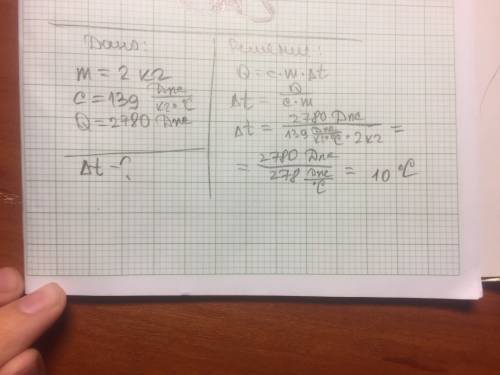 Дано:
m = 2 кг
c = 139 Дж/кг·°C
Q = 2780 Дж
Δt - ?
Решение:
Q = c·m·Δt
Δt = Q/c·m
Δt = 2780 Дж/139 Дж/кг·°C · 2 кг =
= 2780 Дж/278 Дж/°C = 10 °C